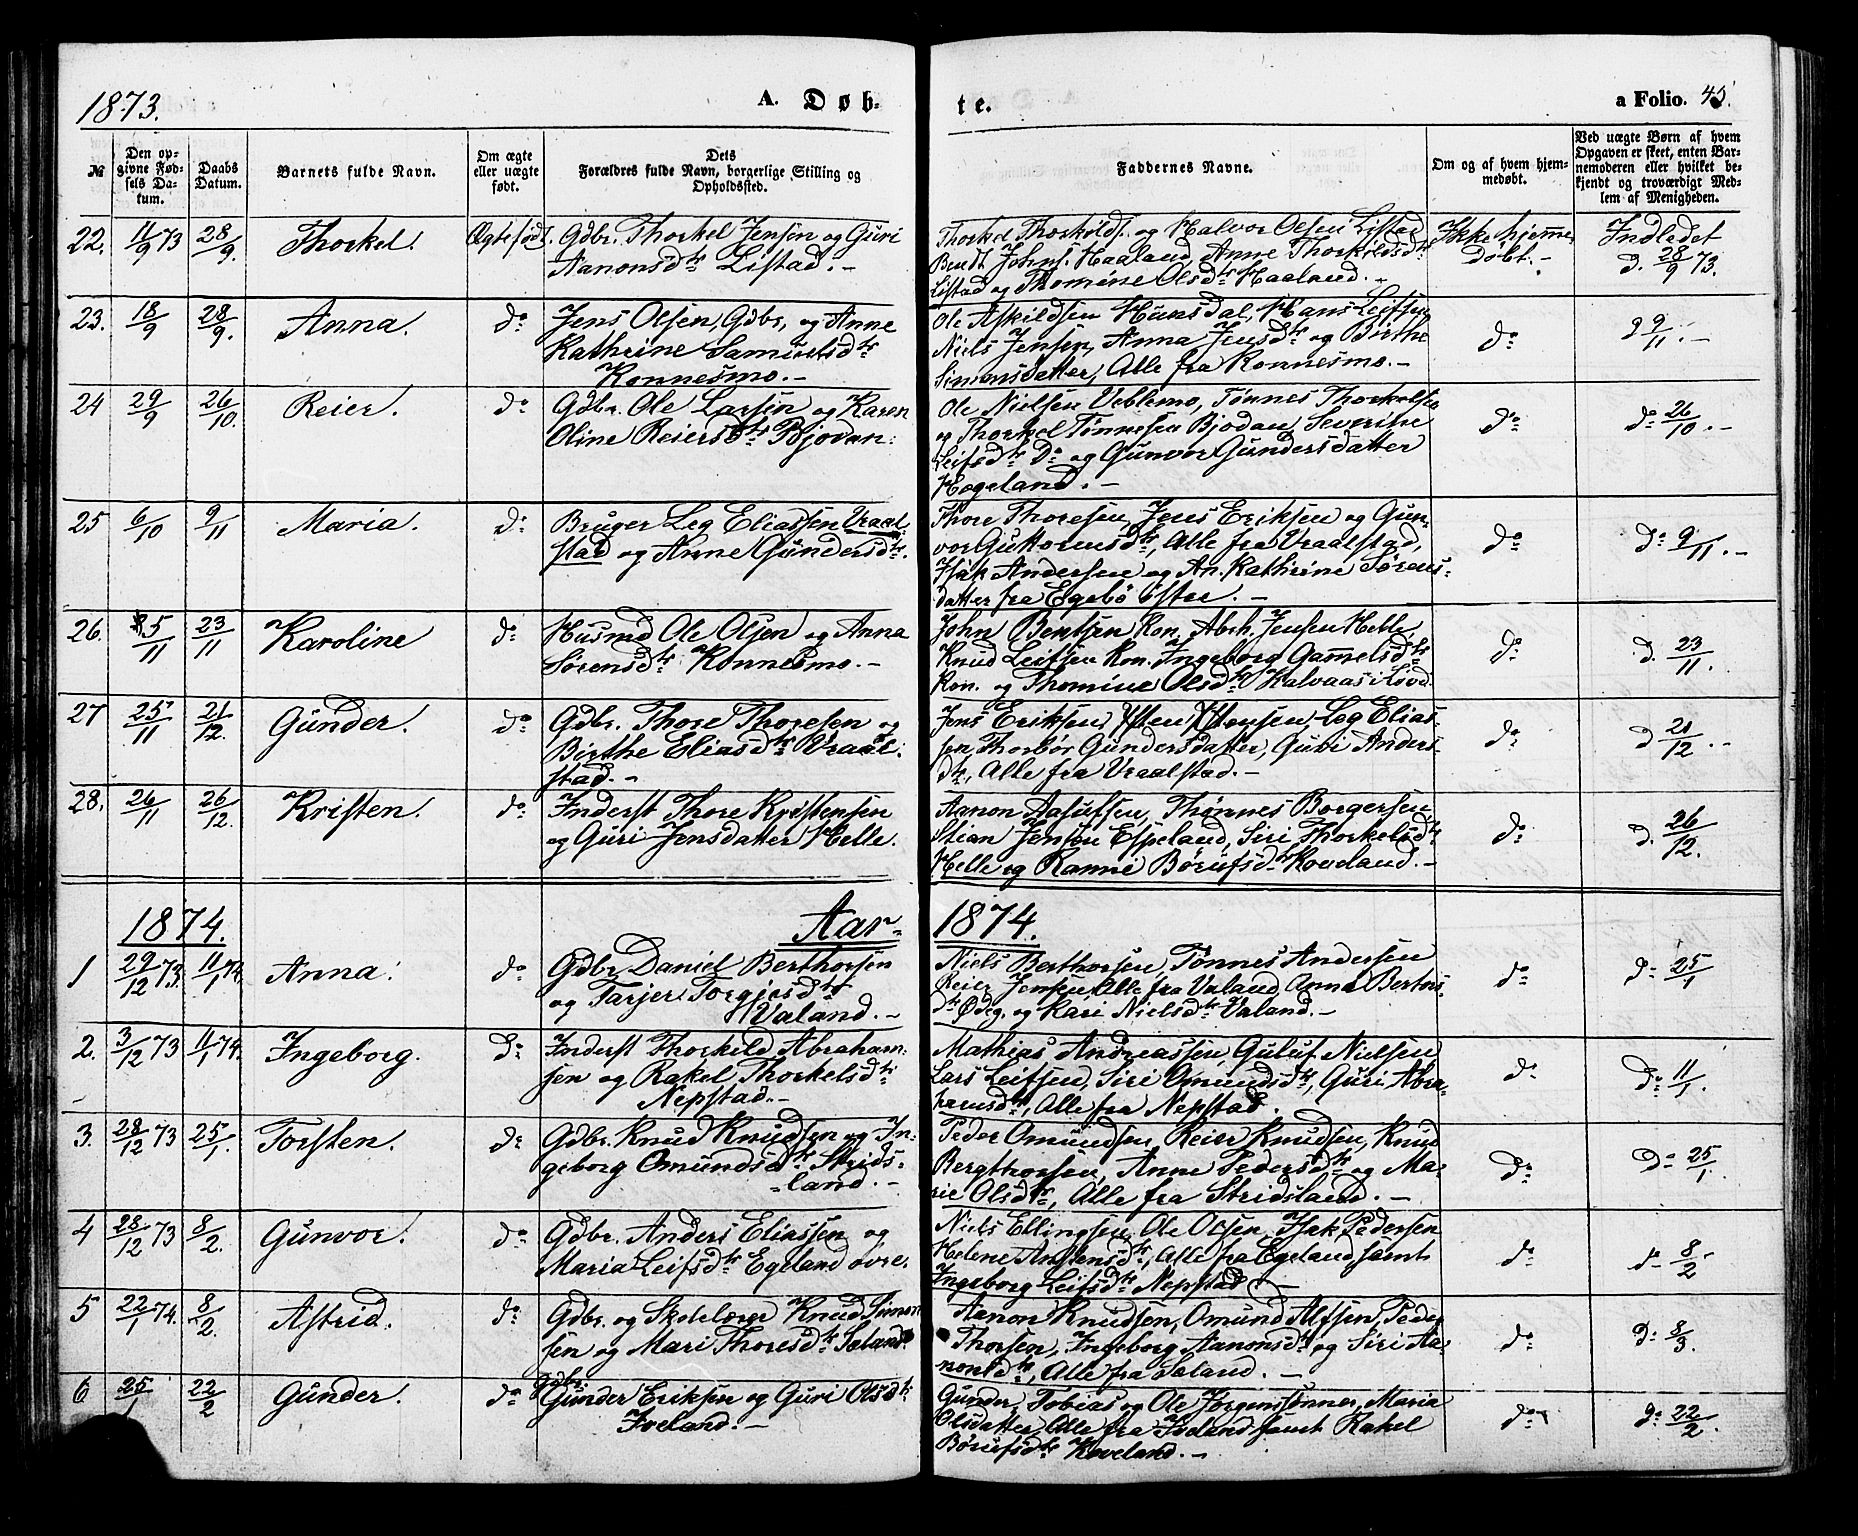 1873.
A. Døb-
te.
a Folio. 45.
№
Den op-
givne Fød-
sels Da-
tum.
Daabs
Datum.
Barnets fulde Navn.
Om ægte
eller uægte
født.
Dets
Forældres fulde Navn, borgerlige Stilling og
Opholdssted.
Faddernes Navne.
Om og af hvem hjem-
medøbt.
Ved uægte Børn af hvem
Opgaven er skeet, enten Bar-
nemoderen eller hvilket be-
kjendt og troværdigt Med-
lem af Menigheden.
22. 11/9 73 28/9. Thorkel. Ægtefødt. Gdbr. Thorkel Jensen og Guri
Aanonsdtr Listad.-
Thorkel Thorkelds. og Halvor Olsen Listad
Bendt Johns. Haaland, Anne Thorkildsdtr
Listad og Thomine Olsdtr Haaland.-
Ikke hjemme
døbt.-
Indledet
d. 28/9 73.
23. 18/9 28/9. Anna. do Jens Olsen, Gdbr, og Anne
Kathrine Samuelsdtr
Konnesmo.-
Ole Askildsen Hunsdal, Hans Leifsen
Niels Jensen, Anna Jensdtr og Birthe
Simonsdatter, Alle fra Konnesmo.-
do
9/11.-
24 29/9 26/10. Reier. do Gdbr. Ole Larsen og Karen
Oline Reiersdtr Bjodan.
Ole Nielsen Veblemo, Tønnes Thorkelsen
og Thorkel Tønnesen Bjodan, Severine
Leifsdtr Do og Gunvor Gundersdatter
Hageland.-
do
do 26/10.-
25 6/10 9/11 Maria. do Bruger Leg Eliassen Vraal-
stad og Anne Gundersdtr.
Thore Thoresen, Jens Eriksen og Gun-
vor Guttormsdtr, Alle fra Vraalstad,
Isak Andersen og An. Kathrine Sørens-
datter fra Egebø østre.-
do
do 9/11.-
26. 25/11 23/11 Karoline do Husmd Ole Olsen og Anna
Sørensdtr Konnesmo.-
John Bentsen Kon. Abrh. Jensen Helle,
Knud Leifsen Kon. Ingeborg Gamelsdtr
Kon. og Thomine Olsdtr Kalvaas i Løvd.
do
d. 23/11.
27 25/11 21/12. Gunder. do Gdbr. Thore Thoresen og
Birthe Eliasdtr Vraal-
stad.-
Jens Eriksen, Østen Østensen, Leg Elias-
sen, Thorbør Gundersdatter, Guri Anders-
dtr, Alle fra Vraalstad.-
do
d 21/12.-
28. 26/11 26/12. Kristen. do Inderst Thore Kristensen
og Guri Jensdatter Helle.
Aanon Aasulfsen, Thønnes Borgersen
Stian Jensen Espeland, Siri Thorkelsdtr
Helle og Ranni Børufsdtr Koveland.-
do
d. 26/12.
1874. Aar 1874.
1 29/12 73. 11/1 74. Anna. do Gdbr. Daniel Berthorsen
og Tarjer Torgjersdtr
Valand.-
Niels Berthorsen, Tønnes Andersen
Reier Jensen Alle fra Valand, Anna Bertors-
dtr Ødeg. og Kari Nielsdtr Valand.-
do
do 25/1
2. 3/12 73 11/1 74. Ingeborg. Do Inderst Thorkild Abraham-
sen og Rakel Thorkelsdtr
Nepstad.-
Mathias Andreassen, Guluf Nielsen
Lars Leifsen, Siri Omundsdtr, Guri Abra-
hamsdtr, Alle fra Nepstad.
do
Do 11/1.
3. 28/12 73 25/1. Torsten. do Gdbr. Knud Knudsen og In-
geborg Omundsdtr Strids-
land.-
Peder Omundsen, Reier Knudsen, Knud
Bergthorsen, Anne Pedersdtr og Ma-
rie Olsdtr, Alle fra Stridsland.-
do
Do 25/1
4 28/12 73 8/2. Gunvor. do Gdbr. Anders Eliassen og
Maria Leifsdtr Egeland øvre.
Niels Ellingsen, Ole Olsen, Isak Pedersen
Helene Anstensdtr, Alle fra Egeland samt
Ingeborg Leifsdtr Nepstad.-
do
d- 8/2
5 22/1 74. 8/2. Astrid. do Gdbr. og Skolelærer Knud Simon
sen og Mari Thoresdtr Soland.
Aanon Knudsen, Omund Alfsen, Peder
Thorsen, Ingeborg Aanonsdtr og Siri Aa-
nonsdtr, Alle fra Soland.-
do
Do 8/3.
6 25/1 22/2 Gunder. do Gdbr.
Gunder Eriksen og Guri Olsdtr
Iveland.-
Gunder, Tobias og Ole Jørgensønner, Maria
Olsdatter, Alle fra Iveland samt Rakel
Børufsdtr Koveland.-
do
Do 22/2.